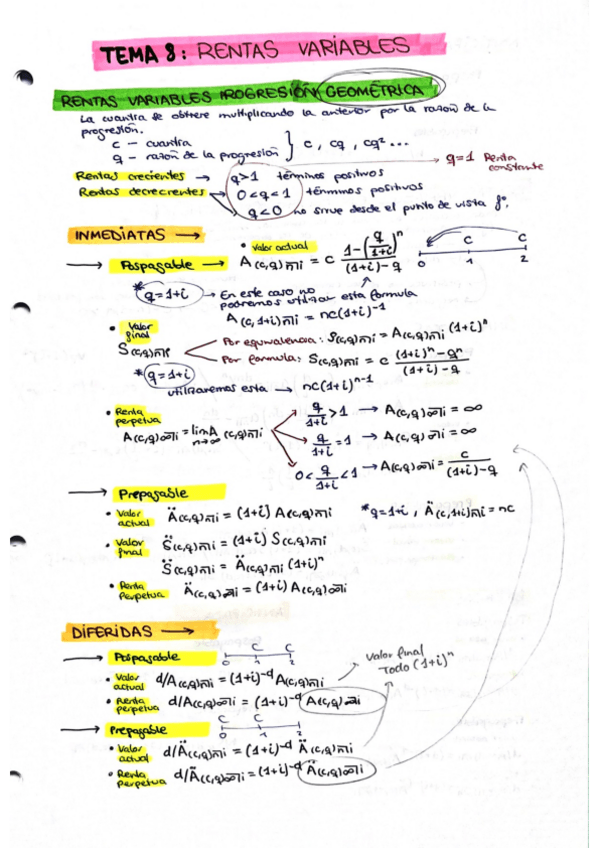 TEMA 8: RENTAS VARIABLES
RENTAS VARIABLES PROGRESIÓN GEOMÉTRICA
La cuantía se obtiene multiplicando la anterior por la razón de la
progresión.
c — cuantía
q — razón de la progresión } c, cq, cq² ...
→ q=1 Renta constante
Rentas crecientes → q>1 términos positivos
Rentas decrecientes → 0<q<1 términos positivos
q<0 no sirve desde el punto de vista fº.
INMEDIATAS →
→ Pospagable → • Valor actual A(c,q)n̅|i = c (1-(q/(1+i))^n)/((1+i)-q)
c c
0 1 2
* q=1+i → En este caso no podremos utilizar esta formula
A(c,1+i)n̅|i = nc(1+i)^-1
• Valor final
S(c,q)n̅|i
Por equivalencia: S(c,q)n̅|i = A(c,q)n̅|i (1+i)^n
Por formula: S(c,q)n̅|i = c ((1+i)^n - q^n)/((1+i)-q)
* q=1+i
utilizaremos esta → nc(1+i)^n-1
• Renta perpetua
A(c,q)∞̅|i = lim n→∞ A(c,q)n̅|i
q/(1+i) >1 → A(c,q)∞̅|i = ∞
q/(1+i) =1 → A(c,q)∞̅|i = ∞
0< q/(1+i) <1 → A(c,q)∞̅|i = c/((1+i)-q)
→ Prepagable
• Valor actual Ä(c,q)n̅|i = (1+i) A(c,q)n̅|i *q=1+i, Ä(c,1+i)n̅|i = nc
• Valor final S̈(c,q)n̅|i = (1+i) S(c,q)n̅|i
S̈(c,q)n̅|i = Ä(c,q)n̅|i (1+i)^n
• Renta Perpetua Ä(c,q)∞̅|i = (1+i) A(c,q)∞̅|i
DIFERIDAS →
→ Pospagable
c c
0 1 2
Valor final
Todo (1+i)^n
• Valor actual d/A(c,q)n̅|i = (1+i)^-d A(c,q)n̅|i
• Renta perpetua d/A(c,q)∞̅|i = (1+i)^-d A(c,q)∞̅|i
→ Prepagable
c c
0 1 2
• Valor actual d/Ä(c,q)n̅|i = (1+i)^-d Ä(c,q)n̅|i
• Renta Perpetua d/Ä(c,q)∞̅|i = (1+i)^-d Ä(c,q)∞̅|i